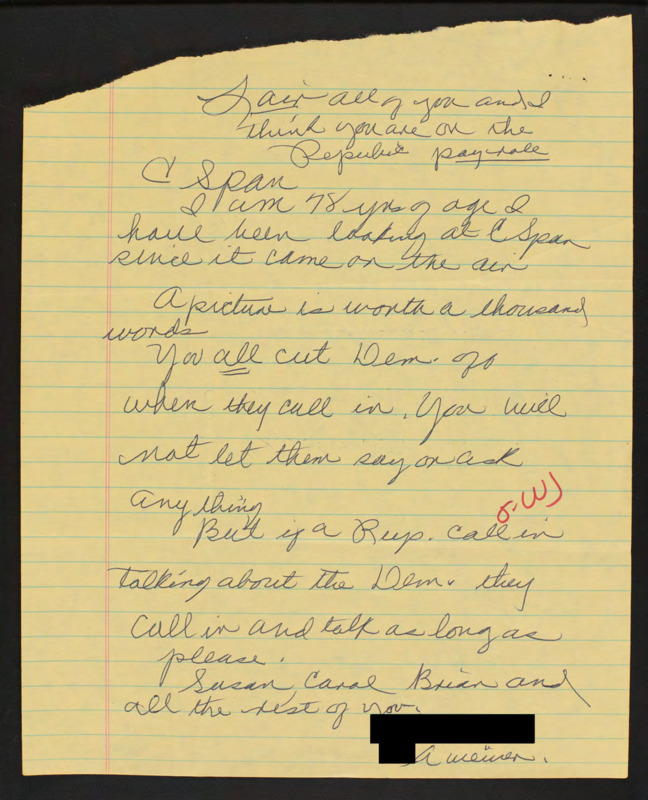 Fair all of you and I
think you are on the
Repubic payrole
C Span
I am 78 yrs of age I
have been looking at C Span
since it came on the air
A picture is worth a thousand
words
You all cut Dem. of
when they call in. You will
not let them say or ask
any thing
o-WJ
But if a Rep. call in
talking about the Dem. they
call in and talk as long as
please.
Susan, Carol Brian and
all the rest of you.
A weiwer.